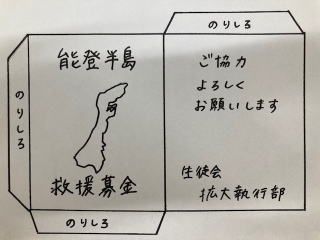 のりしろ
能登半島
のりしろ
救援募金
のりしろ
ご協力
よろしく
お願いします
生徒会
拡大執行部